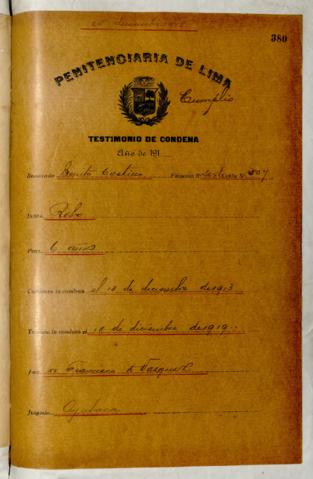 380
PENITENCIARIA DE LIMA
Cumplió
TESTIMONIO DE CONDENA
Año de 191
Benito
Filiación Nº
Robo
Pena 6 años
Comienza la condena el 18 de diciembre de 1913
Termina la condena el 18 de diciembre de 1919
Juez Dr Francisco
Juzgado Ayabaca